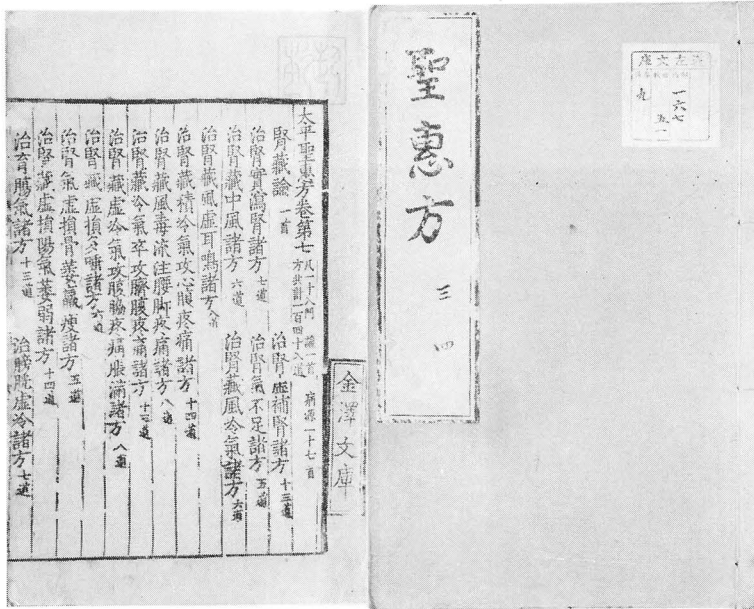 聖惠方
三 四
左文庫
一六七
五一
九
金澤文庫
太平聖惠方卷第七 凡一十八門 論一首 病源一十七首 方共計一百四十八道
腎藏論 一首 治腎虛補腎諸方 十三道
治腎實瀉腎諸方 七道 治腎氣不足諸方 五道
治腎藏中風諸方 六道 治腎藏風冷氣諸方 六道
治腎藏風虛耳鳴諸方 八道
治腎藏積冷氣攻心腹疼痛諸方 十四道
治腎藏風毒流注腰脚疼痛諸方 八道
治腎藏冷氣卒攻臍腹疼痛諸方 十二道
治腎藏虛冷氣攻腹脇疼痛脹滿諸方 八道
治腎藏虛損多唾諸方 六道
治腎氣虛損骨萎羸瘦諸方 五道
治腎藏虛損陽氣萎弱諸方 十四道
治育腸氣諸方 十三道 治膀胱虛冷諸方 七道